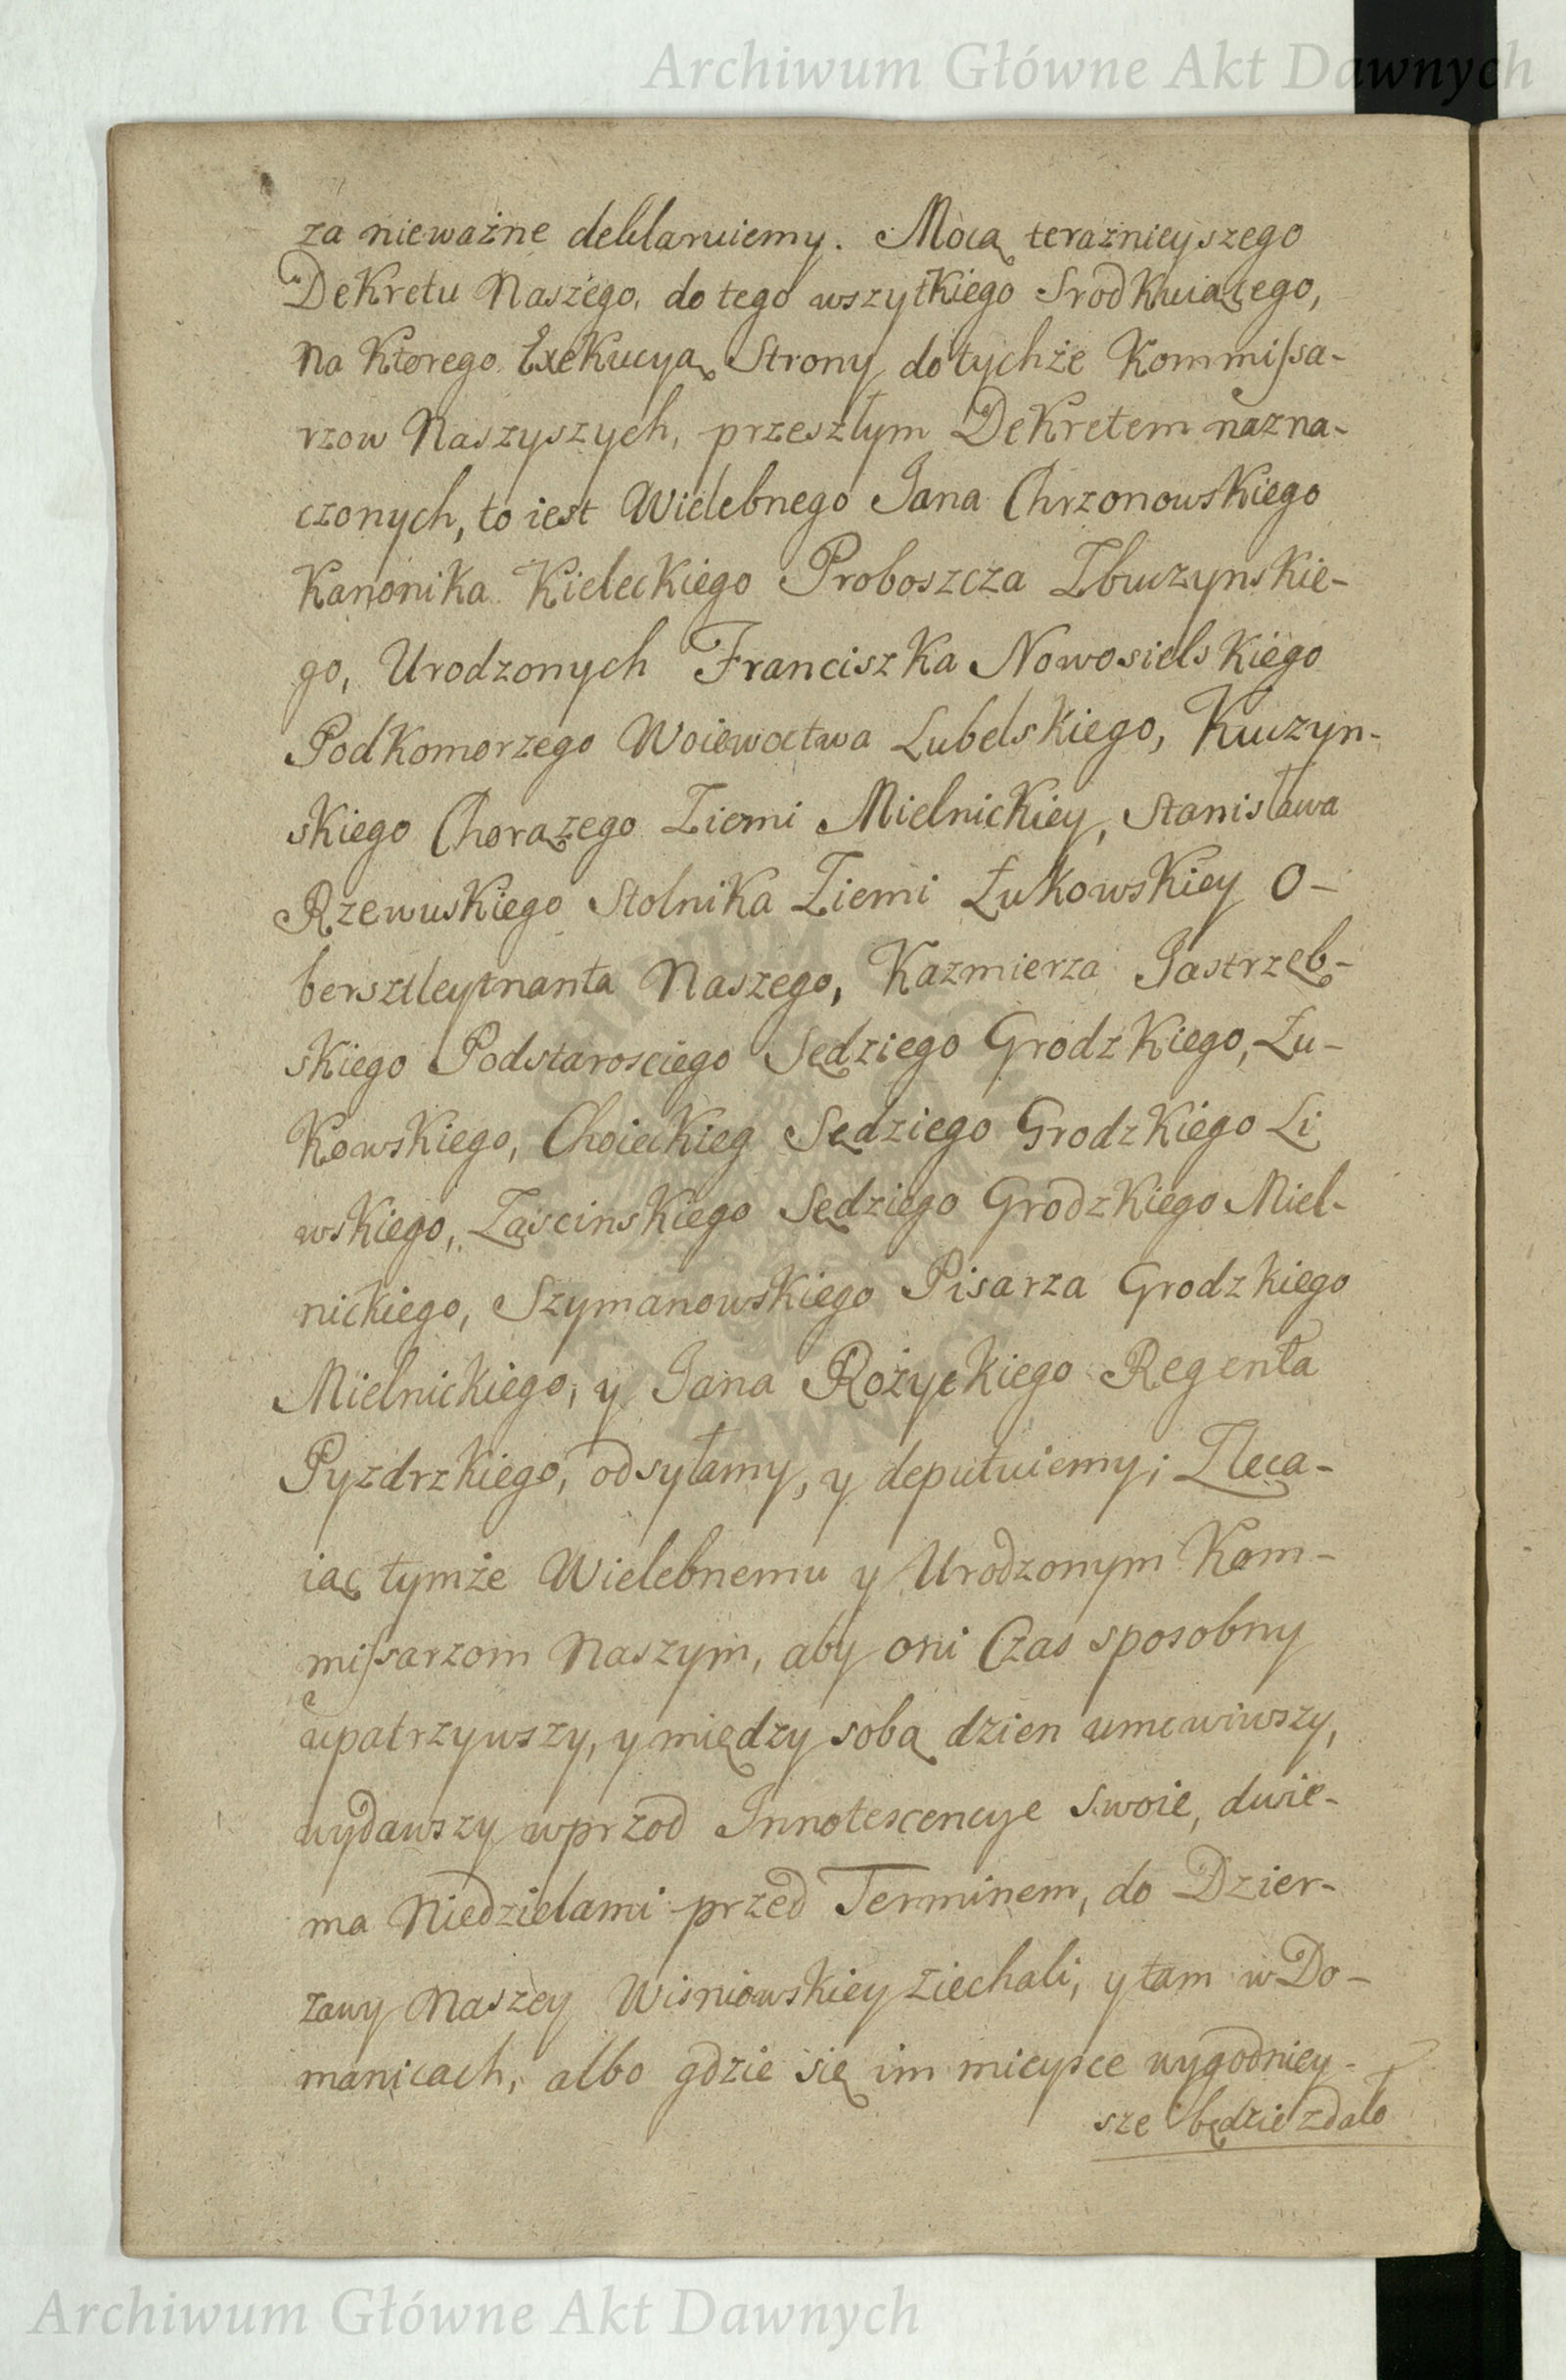 Archiwum Główne Akt Dawnych
za nieważne deklaruiemy. Mocą teraznieyszego
Dekretu Naszego, do tego wszytkiego Srodkuiącego,
na ktorego Exekucyą Strony do tychże Kommissa-
rzow Naszyszych, przeszłym Dekretem nazna-
czonych, to iest Wielebnego Jana Chrzonowskiego
Kanonika Kieleckiego Proboszcza Zbuczynskie-
go, Urodzonych Franciszka Nowosielskiego
Podkomorzego Woiewoctwa Lubelskiego, Kuczyn-
skiego Chorążego Ziemi Mielnickiey, Stanisława
Rzewuskiego Stolnika Ziemi Łukowskiey O-
bersztleytnanta Naszego, Kazmierza Jastrzęb-
skiego Podstarosciego Sędziego Grodzkiego, Łu-
kowskiego, Choieckieg Sędziego Grodzkiego Li
wskiego, Ząscinskiego Sędziego Grodzkiego Miel-
nickiego, Szymanowskiego Pisarza Grodzkiego
Mielnickiego, y Jana Rożyckiego Regenta
Pyzdrzkiego, odsyłamy, y deputuiemy; Zleca-
iąc tymże Wielebnemu y Urodzonym Kom-
missarzom Naszym, aby oni Czas sposobny
upatrzywszy, y między sobą dzien umowiwszy,
wydawszy wprzod Innotescencye swoie, dwie-
ma Niedzielami przed Terminem, do Dzier-
żawy Naszey Wisniowskiey ziechali, y tam w Do-
manicach, albo gdzie się im mieysce wygodniey-
sze będzie zdało
Archiwum Główne Akt Dawnych